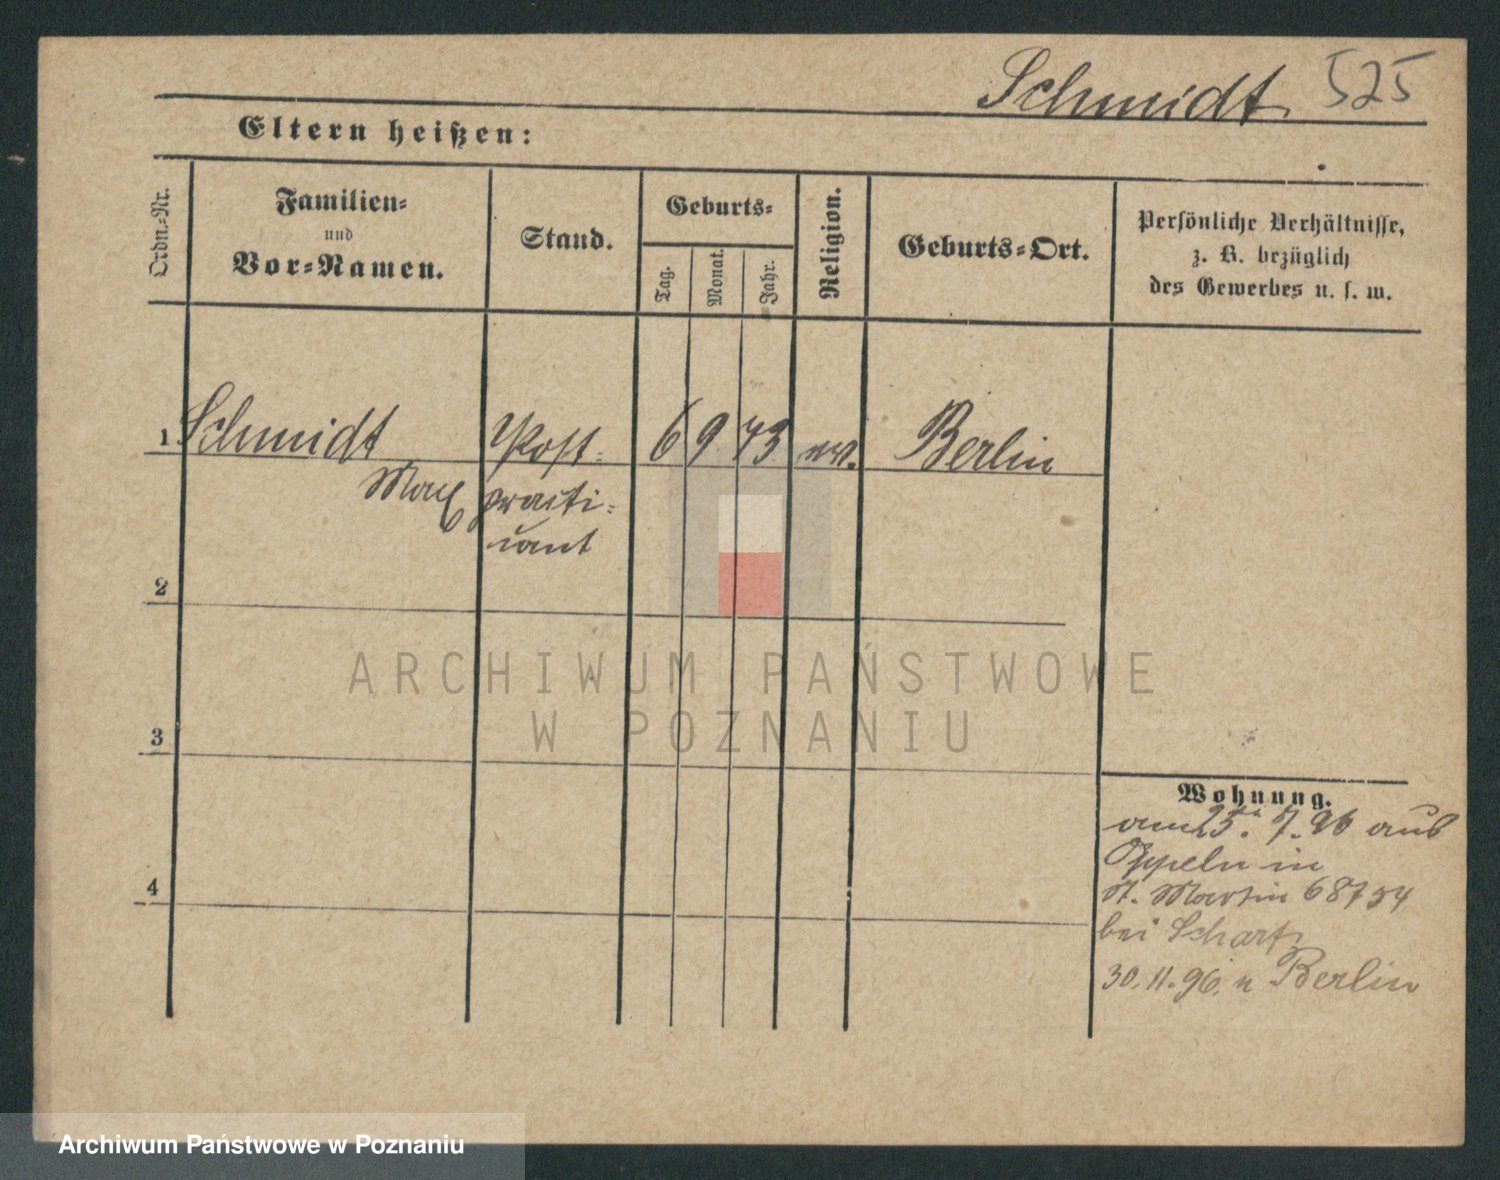 Schmidt 525
Eltern heißen:
Ordn.=Nr.
Familien=
und
Vor=Namen.
Stand.
Geburts=
Tag.
Monat.
Jahr.
Religion.
Geburts=Ort.
Persönliche Verhältnisse,
z. B. bezüglich
des Gewerbes u. s. w.
1 Schmidt Post= 6 9 73 ev. Berlin
Max practi=
cant
2
3
4
Wohnung.
am 25. 7. 96 aus
Oppeln in
St. Martin
bei Scharf
30. 11. 96. n Berlin
ARCHIWUM PAŃSTWOWE
W POZNANIU
Archiwum Państwowe w Poznaniu